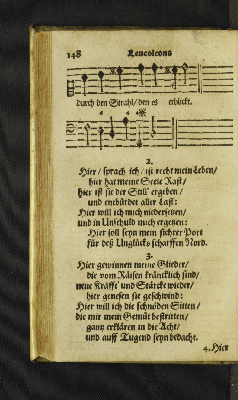 148 Leucoleons
durch den Strahl/ den es erblickt.
2.
Hier/ sprach ich/ ist recht mein Leben/
hier hat meine Seele Rast/
hier ist sie der Still' ergeben/
und entbürdet aller Last:
Hier will ich mich niedersetzen/
und in Unschuld mich ergetzen:
Hier soll seyn mein sichrer Port
für deß Unglücks scharffen Nord.
3.
Hier gewinnen meine Glieder/
die vom Räisen kräncklich sind/
neue Kräffte und Stärcke wieder/
hier genesen sie geschwind:
Hier will ich die schnöden Sitten/
die mir mein Gemüt bestritten/
gantz erklären in die Acht/
und auff Tugend seyn bedacht.
4. Hier